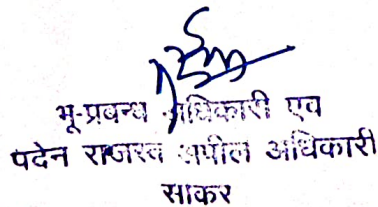 भू-प्रबन्ध अधिकारी एव
पदेन राजस्व अपील अधिकारी
साकर